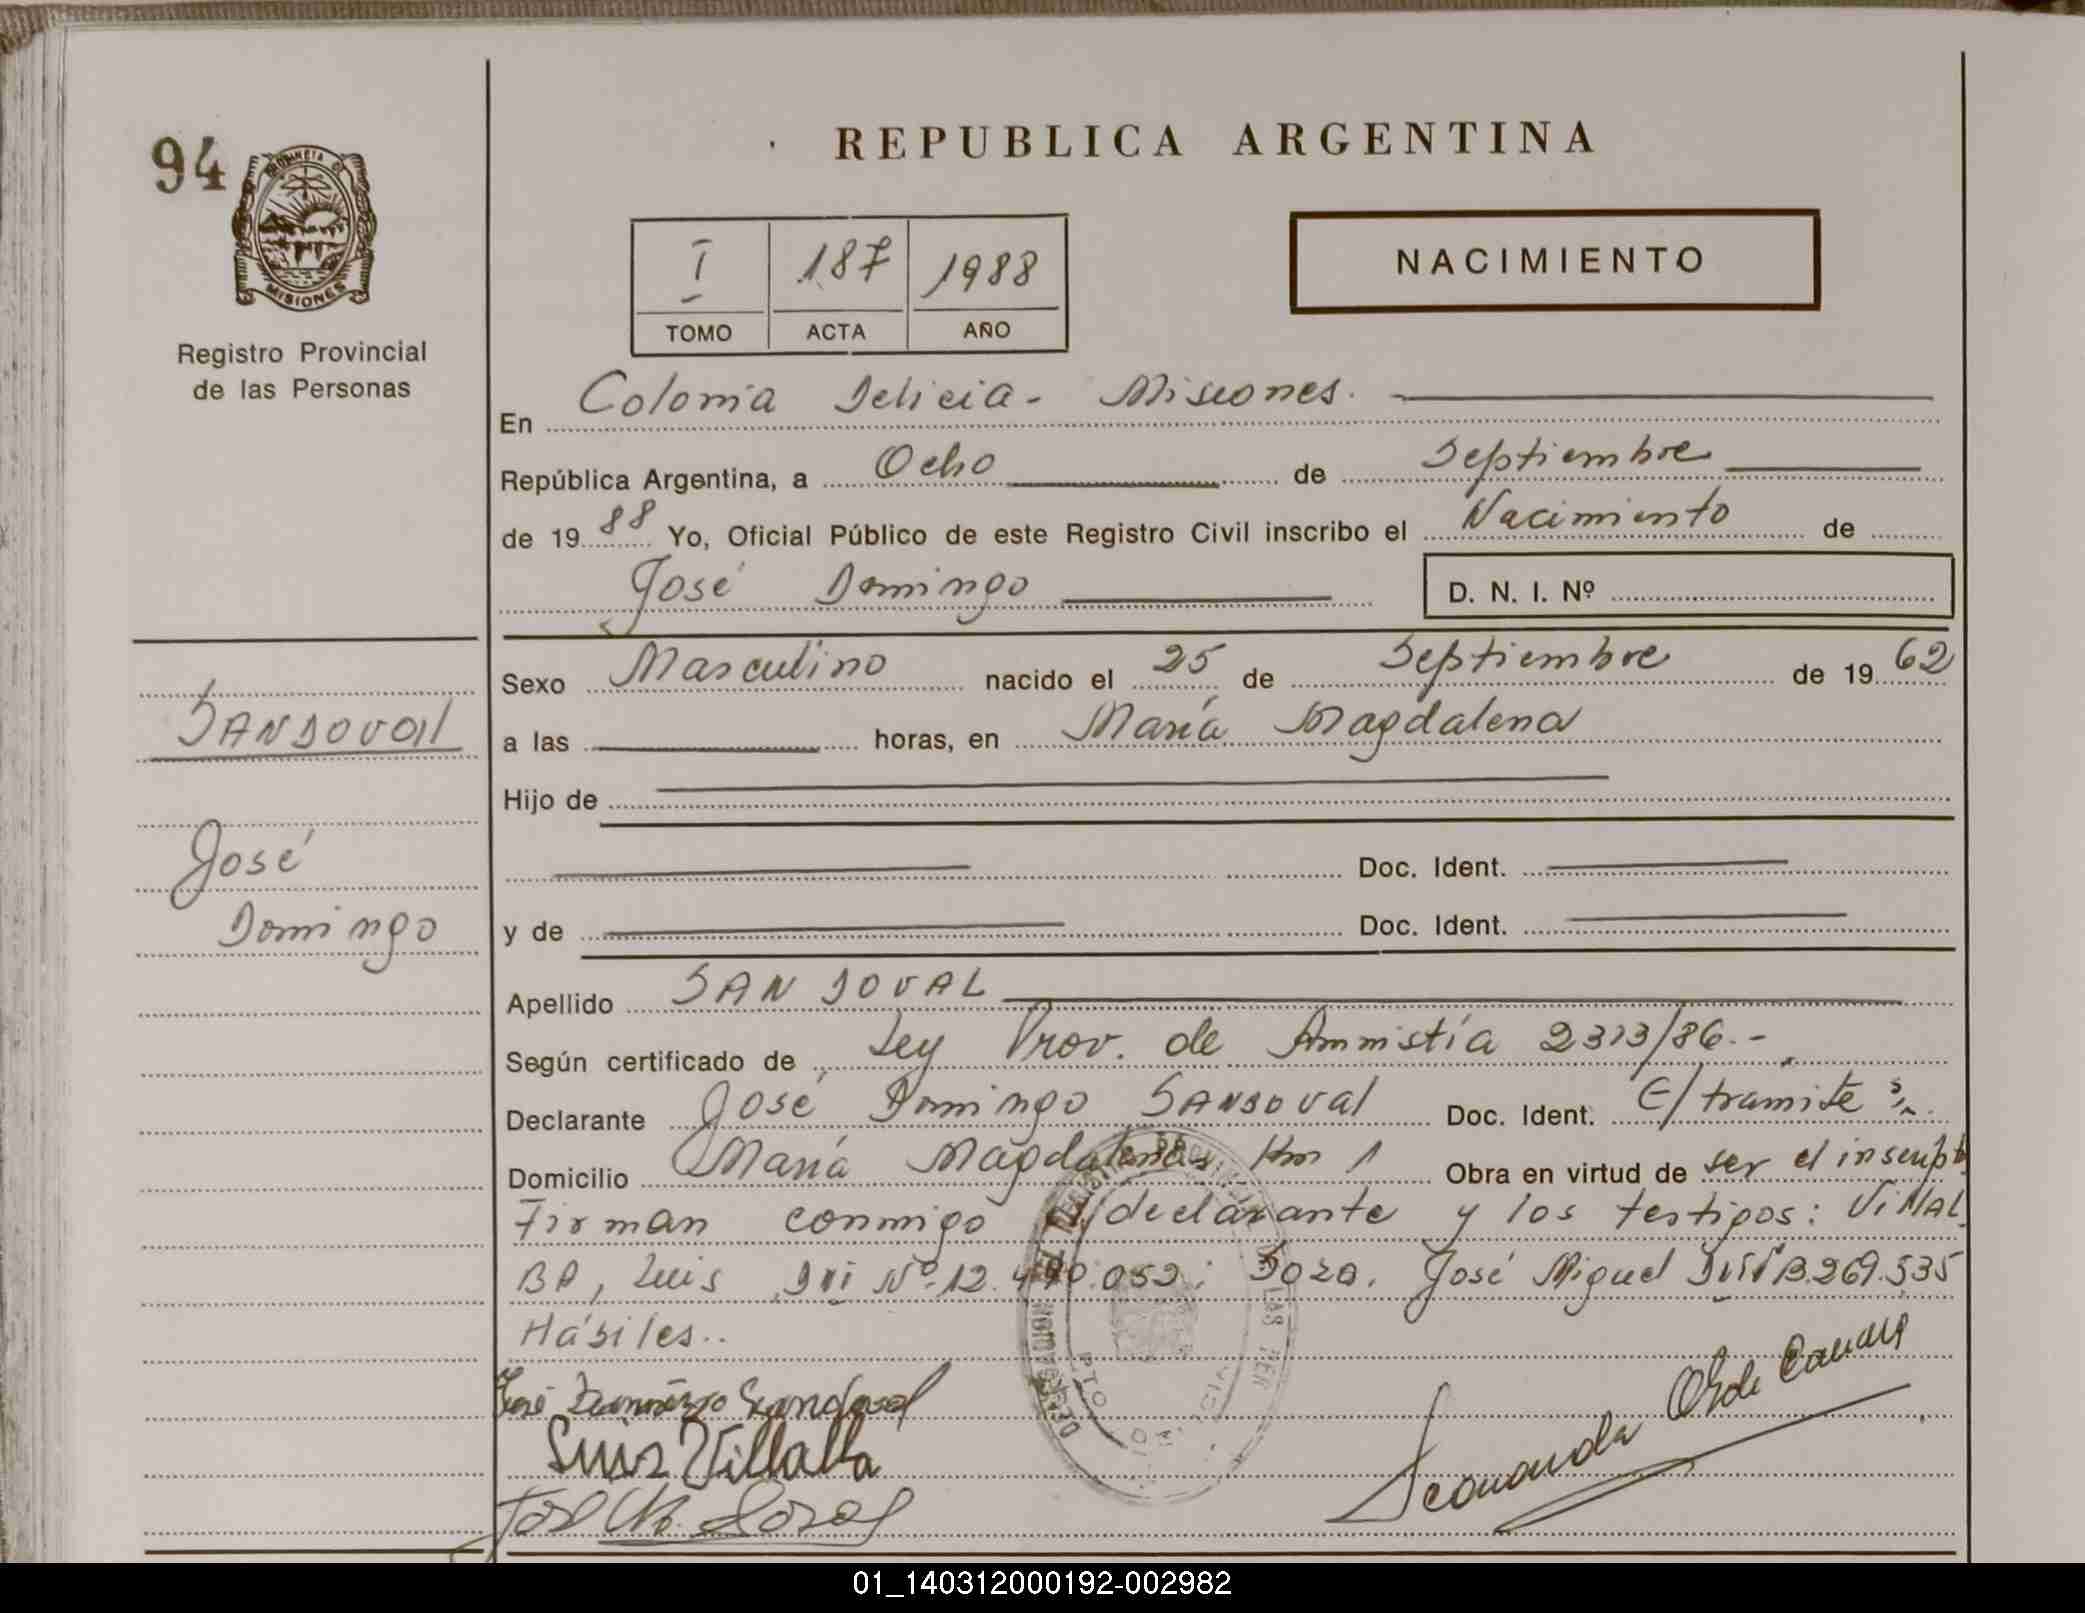 94
MISIONES
Registro Provincial
de las Personas
REPUBLICA ARGENTINA
I 187 1988
TOMO ACTA AÑO
NACIMIENTO
En Colonia Delicia - Misiones.
República Argentina, a Ocho de Septiembre
de 19 88 Yo, Oficial Público de este Registro Civil inscribo el Nacimiento de
José Domingo D. N. I. Nº
Sexo Masculino nacido el 25 de Septiembre de 19 62
a las horas, en María Magdalena
Hijo de
Doc. Ident.
y de Doc. Ident.
SANDOVAL
José
Domingo
Apellido SANDOVAL
Según certificado de Ley Prov. de Amnistía 2313/86.-
Declarante José Domingo SANDOVAL Doc. Ident. E/tramite
Domicilio María Magdalena Km 1 Obra en virtud de ser el inscripto
Firman conmigo el declarante y los testigos: VillAL
BA, Luis DNI Nº 12.490.052; José Miguel
Hábiles..
José Domingo Sandoval
Luis Villalba
01_140312000192-002982